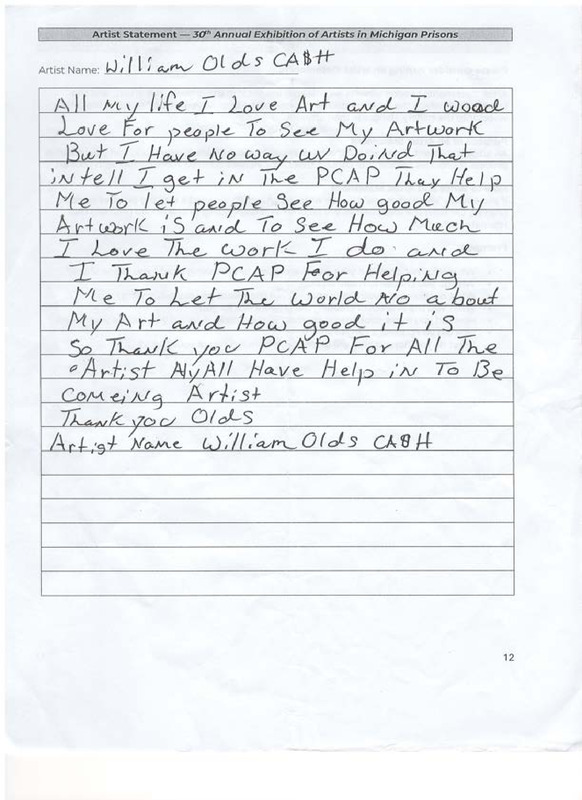 Artist Statement — 30th Annual Exhibition of Artists in Michigan Prisons
Artist Name: William Olds CA$H
All My life I Love Art and I woood
Love For people To See My Artwork
But I Have No way uv Doind That
intell I get in The PCAP Thay Help
Me To let people See How good My
Artwork is and To See How Much
I Love The work I do and
I Thank PCAP For Helping
Me To Let The World No about
My Art and How good it is
So Thank you PCAP For All The
Artist All Have Help in To Be
Comeing Artist
Thank you Olds
Artist Name William Olds CA$H
12